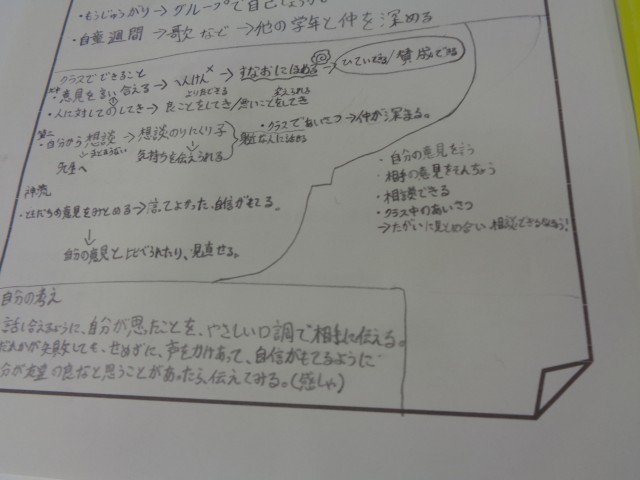 ・もうじゅうがり→グループで自己しょうかい
・自童週間→歌など→他の学年と仲を深める
クラスでできること
・意見を言い合える→ すなおにほめる→ 賛成できる
・人に対してのしてき→良ことをしてき/悪いことをしてき
・自分から想談→想談のりにくり子
気持ちを伝えられる
・クラスであいさつ→仲が深まる。
先生へ
→言てよかった、自信がもてる。
自分の意見と上とべられたり、見直せる。
・自分の意見を言う
・相手の意見をそんちょう
・相談できる
・クラス中のあいさつ
→たがいに見とめ合い、相談できるなろう!
自分の考え
話し合えるように、自分が思ったことを、やさしい口調で相手に伝える。
だれかが失敗しても、せめずに、声をかけあって、自信がもてるように
分が友望の良なと思うことがあったら、伝えてみる。(感しゃ)